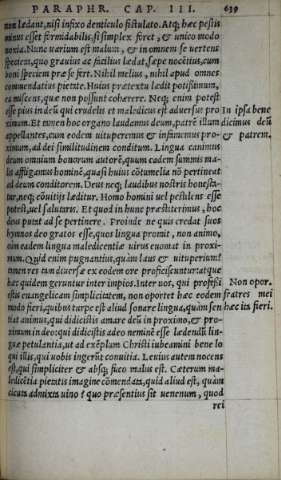 PARAPHR. CAP. III. 639
non lædant, nisi infixo denticulo fistulato. Atq; hæc pestis
minus esset formidabilis, si simplex foret, & unico modo
noxia. Nunc uarium est malum, & in omnem se uertens
speciem, quo grauius ac facilius lædat, sæpe nocitura, cum
boni speciem præ se fert. Nihil melius, nihil apud omnes
commendatius pietate. Huius prætextu lædit potissimum,
ea miscens, quæ non possunt cohærere. Neq; enim potest
esse pius in deū qui crudelis et maledicus est aduersus pro
In ipsa bene
ximum. Et tamen hoc organo laudamus deum, patrē illum
dicimus deū
appellantes, cum eodem uituperemus & infamemus pro-
& patrem.
ximum, ad dei similitudinem conditum. Lingua canimus
deum omnium bonorum autorē, quum eadem summis ma-
lis affligamus hominē, quasi huius cōtumelia nō pertineat
ad deum conditorem. Deus neq; laudibus nostris honesta-
tur, neq; cōuitijs læditur. Homo homini uel pestilens esse
potest, uel salutaris. Et quod in hunc præstiterimus, hoc
deus putat ad se pertinere. Proinde ne quis credat suos
hymnos deo gratos esse, quos lingua promit, non animo,
cum eadem lingua maledicentiæ uirus euomat in proxi-
mum. Quid enim pugnantius, quàm laus & uituperium?
tamen res tam diuersæ ex eodem ore proficiscuntur: atque
hæc quidem geruntur inter impios. Inter uos, qui professi
Non opor.
estis euangelicam simplicitatem, non oportet hæc eodem
fratres mei
modo fieri, quibus turpe est aliud sonare lingua, quàm sen
hæc ita fieri.
tiat animus, qui didicistis amare deū in proximo, & pro-
ximum in deo: qui didicistis adeo neminē esse lædendū lin-
guæ petulantia, ut ad exēplum Christi iubeamini bene lo
qui illis, qui uobis ingerūt conuitia. Leuius autem nocens
est, qui simpliciter & absq; fuco malus est. Cæterum ma-
ledicētia pietatis imagine cōmendata, quid aliud est, quàm
cicuta admixta uino? quo præsentius sit uenenum, quod
rei